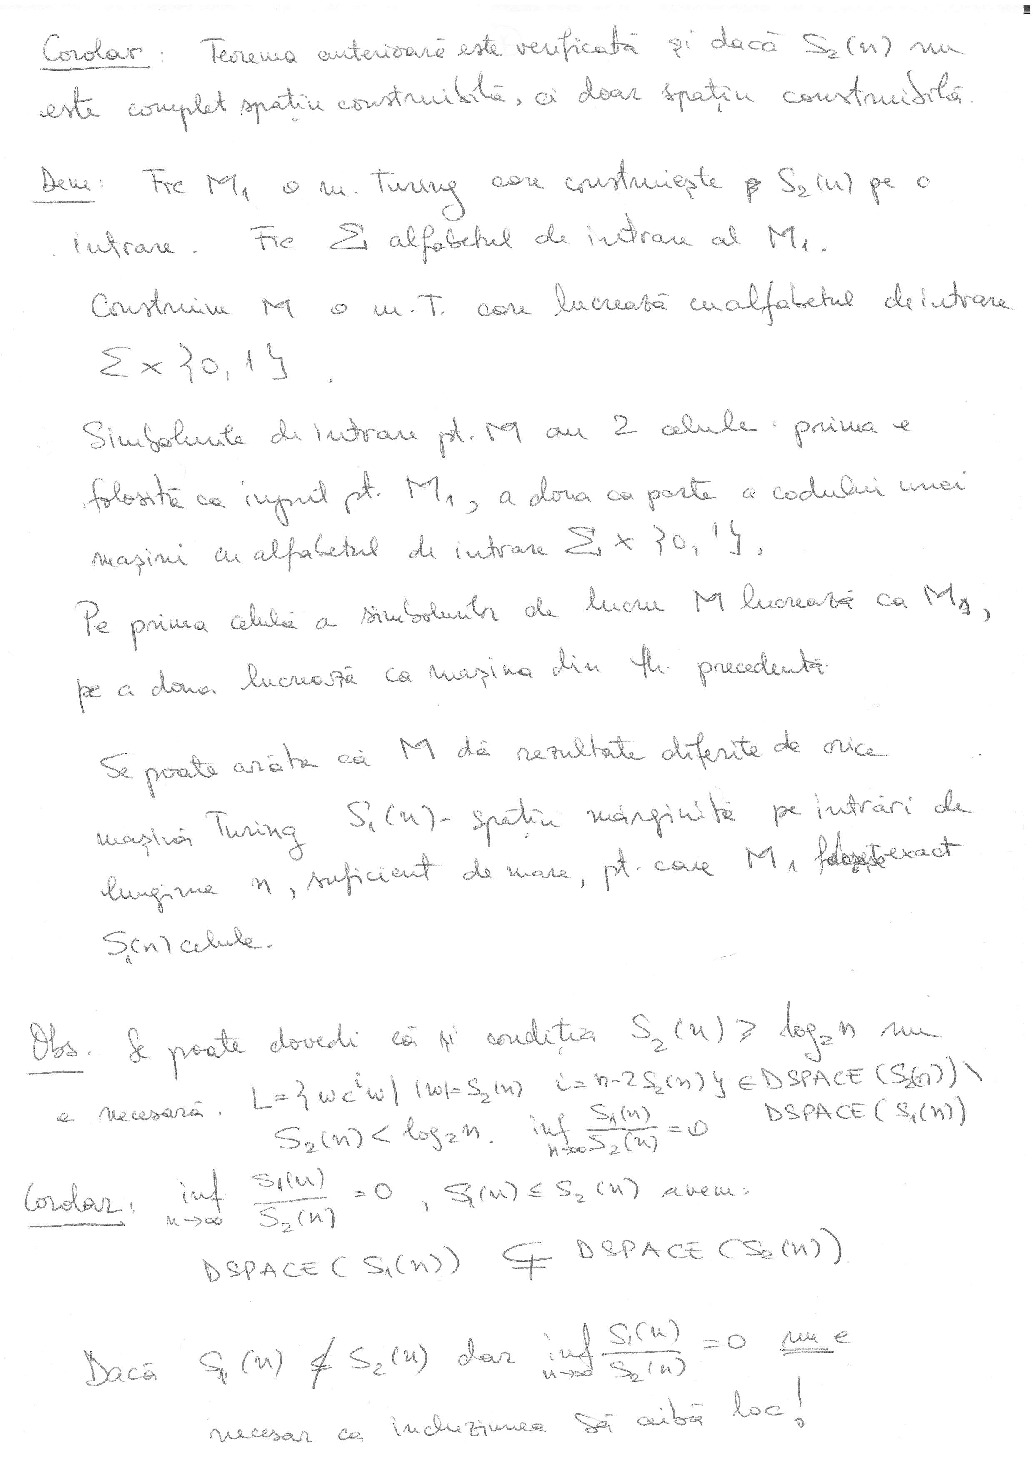 Corolar: Teorema anterioară este verificată şi dacă S₂(n) nu
este complet spaţiu construibilă, ci doar spaţiu construibilă.
Dem: Fie M₁ o m. Turing care construieşte S₂(n) pe o
intrare. Fie Σ alfabetul de intrare al M₁.
Construim M o m.T. care lucrează cu alfabetul de intrare
Σ x {0,1}.
Simbolurile de intrare pt. M au 2 celule: prima e
folosită ca input pt. M₁, a doua ca parte a codului unei
maşini cu alfabetul de intrare Σ x {0,1}.
Pe prima celulă a simbolurilor de lucru M lucrează ca M₁,
pe a doua lucrează ca maşina din th. precedentă.
Se poate arăta că M dă rezultate diferite de orice
maşină Turing S₁(n)- spaţiu mărginită pe intrări de
lungime n, suficient de mare, pt. care M₁ foloseşte exact
S₂(n) celule.
Obs. Se poate dovedi că şi condiţia S₂(n) ≥ log₂n nu
e necesară. L={wcⁱw | |w|=S₂(n) i=n-2S₂(n)} ∈ DSPACE(S₂(n)) \
S₂(n) < log₂n. inf n→∞ S₁(n)/S₂(n) = 0 DSPACE(S₁(n))
Corolar: inf n→∞ S₁(n)/S₂(n) = 0, S₁(n) ≤ S₂(n) avem:
DSPACE(S₁(n)) ⊊ DSPACE(S₂(n))
Dacă S₁(n) ≰ S₂(n) dar inf n→∞ S₁(n)/S₂(n) = 0 nu e
necesar ca incluziunea să aibă loc!